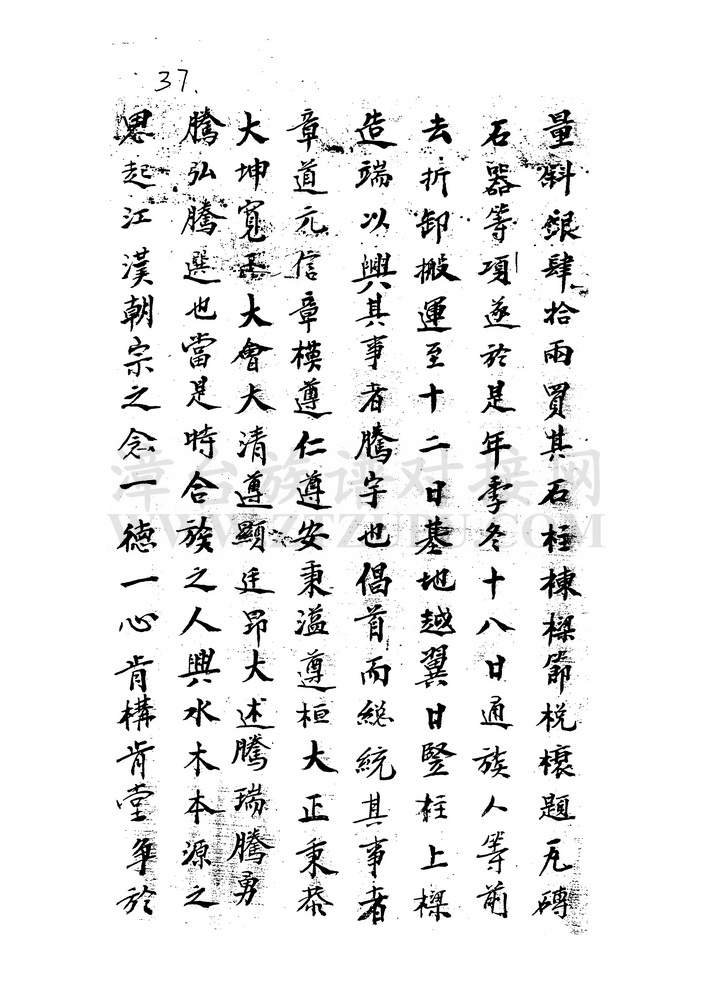 37.
量斟銀肆拾兩買其石柱棟樑節梲榱題瓦磚
石器等項遂於是年季冬十八日通族人等前
去折卸搬運至十二日基地越翼日豎柱上樑
造端以興其事者騰宇也倡首而總統其事者
章道元信章模遵仁遵安秉溢遵桓大正秉恭
大坤寬 大會大清遵顯廷昂大述騰瑞騰勇
騰弘騰選也當是時合族之人興水木本源之
思起江漢朝宗之念一德一心肯構肯堂爭於
漳台族譜对接网
WWW.ZTZUPU.COM